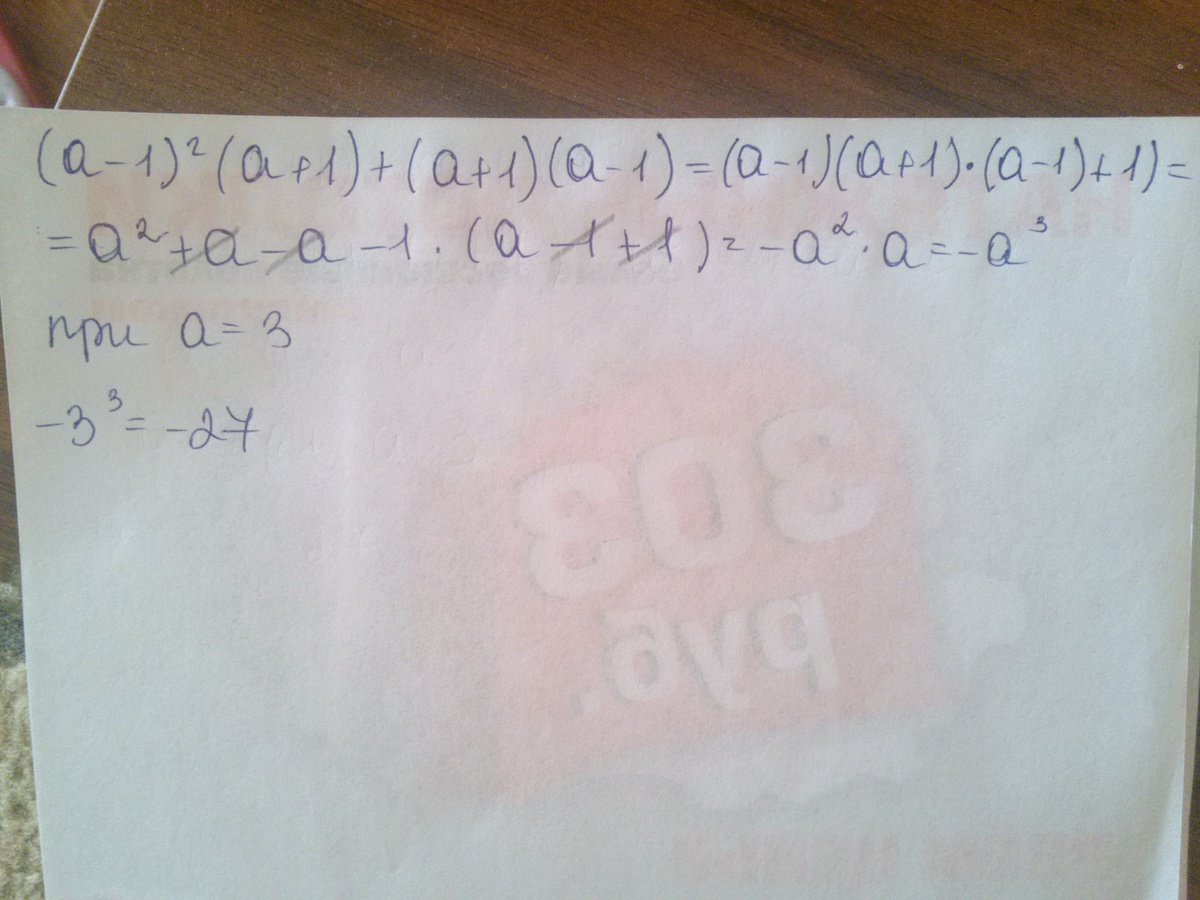 (a-1)²(a+1)+(a+1)(a-1)=(a-1)(a+1)·(a-1)+1)=
=a²+a-a-1·(a-1+1)=-a²·a=-a³
при a=3
-3³=-27
303
руб.